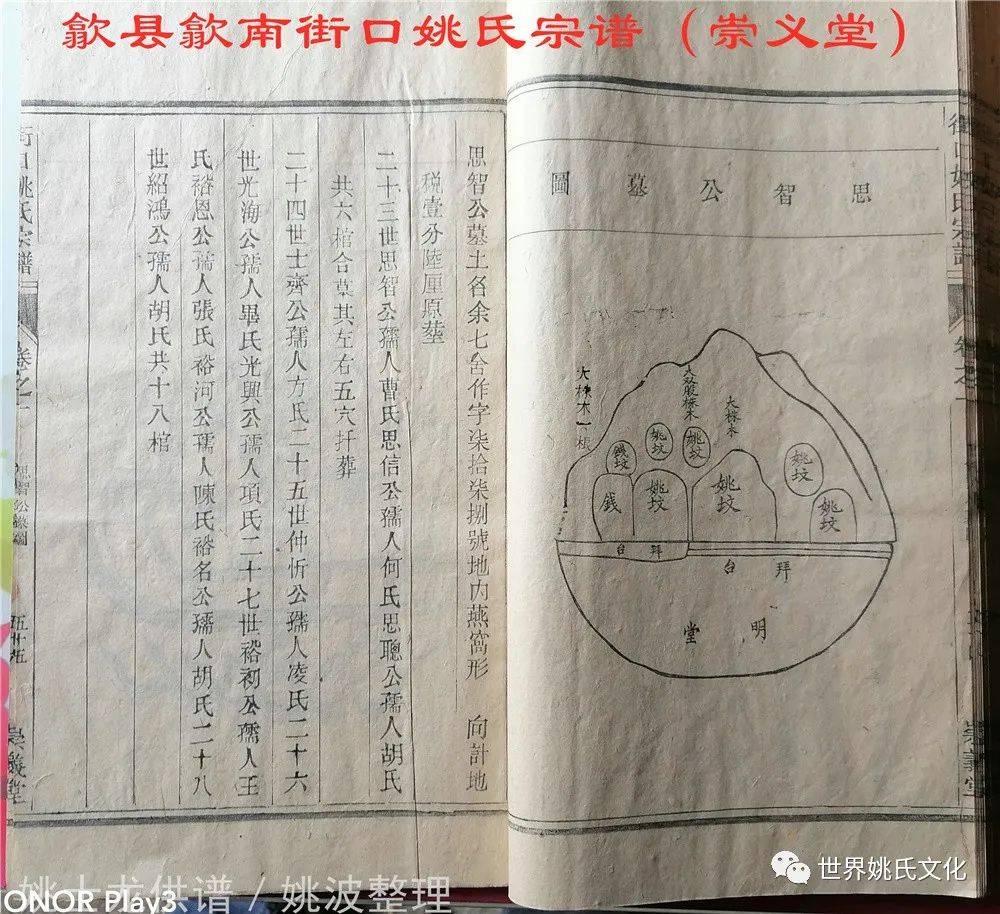 歙县歙南街口姚氏宗谱（崇义堂）
思智公墓圖
大株木一根
大双股株木
大株木
錢坟
姚坟
姚坟
姚坟
錢
姚坟
姚坟
姚坟
拜台
拜台
明堂
崇義堂
思智公墓土名余七舍作字柒拾柒捌號地内燕窩形 向計地
税壹分陸厘原塋
二十三世思智公孺人曹氏思信公孺人何氏思聰公孺人胡氏
共六棺合墓其左右五穴扦葬
二十四世士齊公孺人方氏二十五世仲忻公孺人凌氏二十六
世光海公孺人畢氏光興公孺人項氏二十七世裕初公孺人王
氏裕恩公孺人張氏裕河公孺人陳氏裕名公孺人胡氏二十八
世紹鴻公孺人胡氏共十八棺
街口姚氏宗譜
卷之一
思智公墓圖
崇義堂
姚士龙供谱 / 姚波整理
ONOR Play3
世界姚氏文化